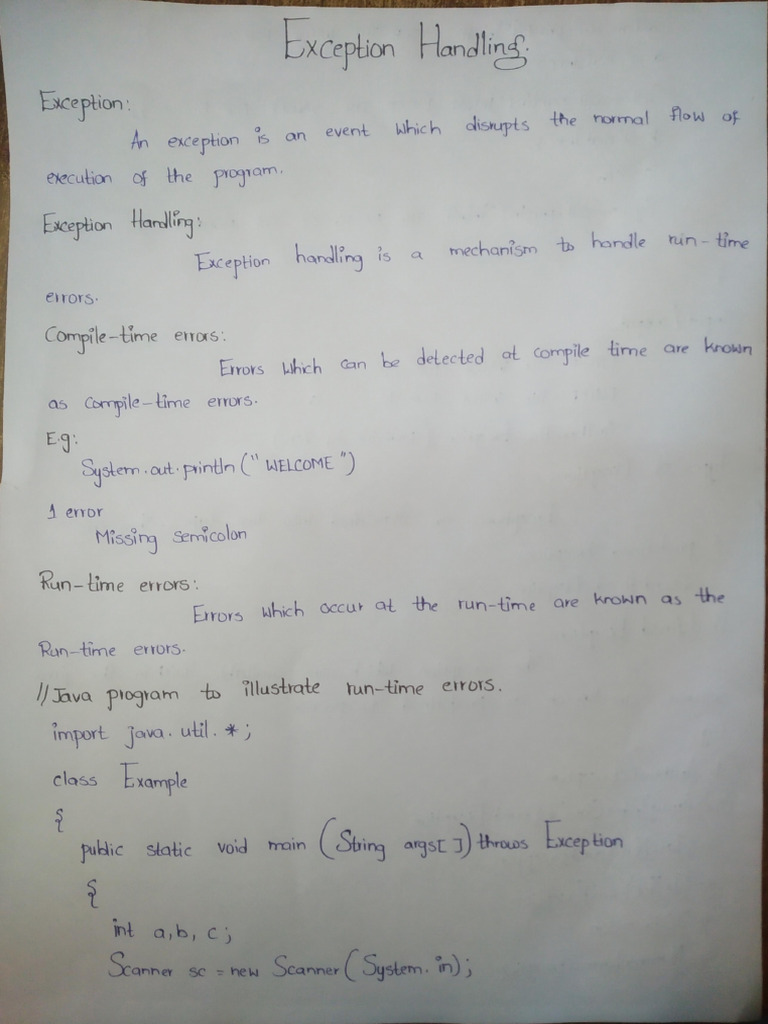 Exception Handling.
Exception:
An exception is an event which disrupts the normal flow of
execution of the program.
Exception Handling:
Exception handling is a mechanism to handle run-time
errors.
Compile-time errors:
Errors which can be detected at compile time are known
as compile-time errors.
E.g:
System.out.println("WELCOME")
1 error
Missing semicolon
Run-time errors:
Errors which occur at the run-time are known as the
Run-time errors.
//Java program to illustrate run-time errors.
import java.util.*;
class Example
{
public static void main (String args[ ]) throws Exception
{
int a,b,c;
Scanner sc = new Scanner(System.in);